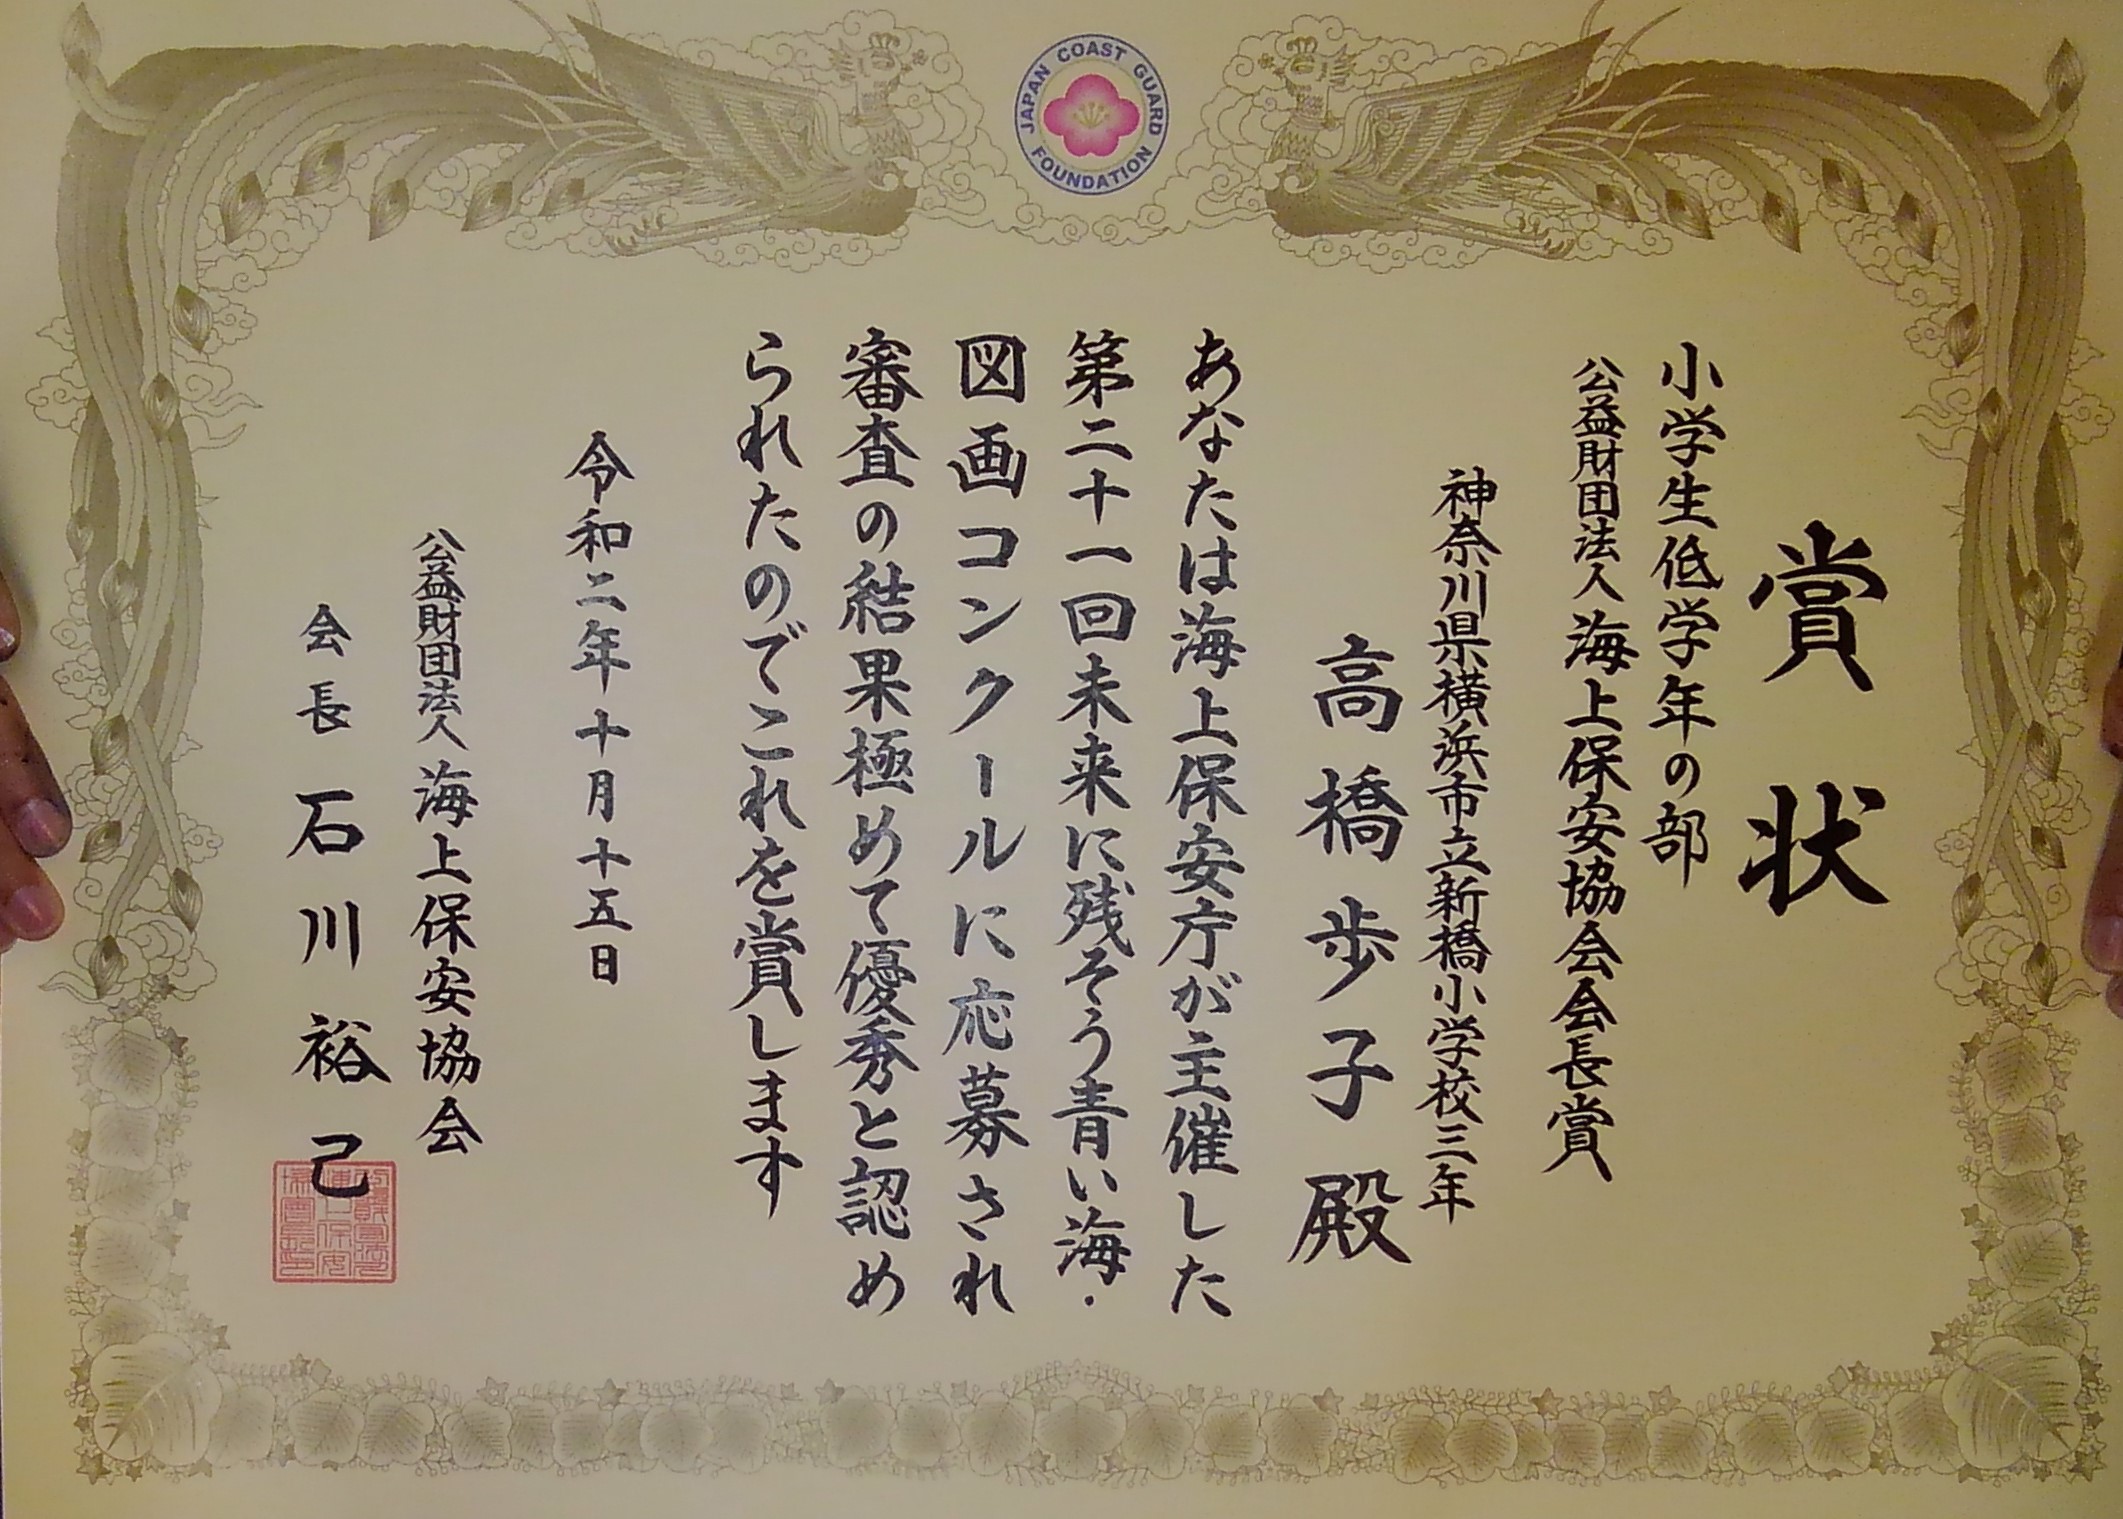 JAPAN COAST GUARD FOUNDATION
賞状
小学生低学年の部
公益財団法人海上保安協会会長賞
神奈川県横浜市立新橋小学校三年
高橋歩子殿
あなたは海上保安庁が主催した
第二十一回未来に残そう青い海・
図画コンクールに応募され
審査の結果極めて優秀と認め
られたのでこれを賞します
令和二年十月十五日
公益財団法人海上保安協会
会長石川裕己